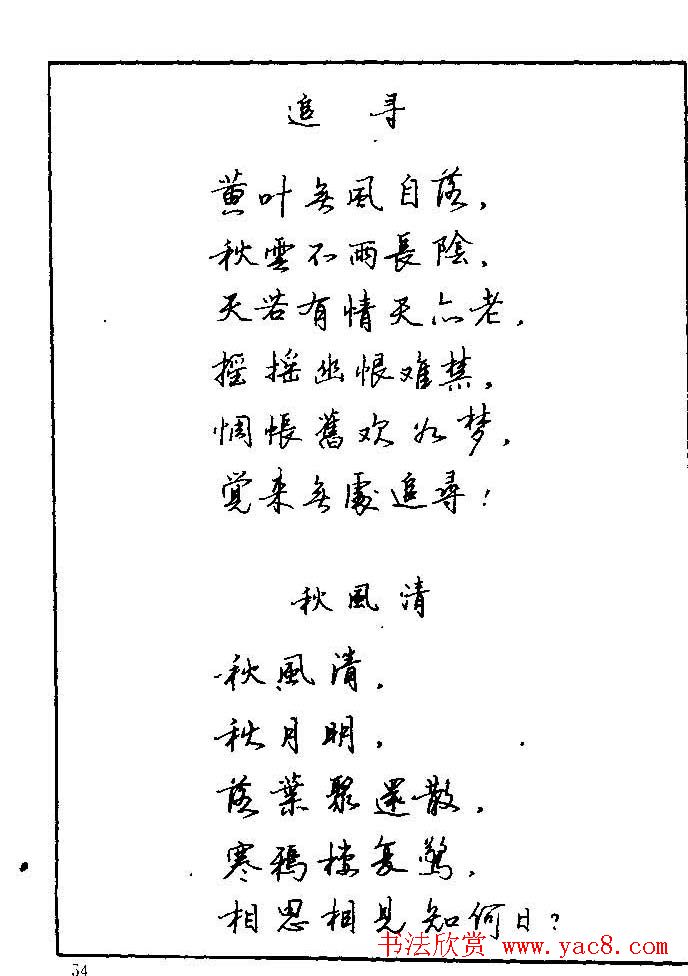 追 寻
黄叶無風自落，
秋雲不雨長陰，
天若有情天亦老，
摇摇幽恨难禁，
惆悵舊欢如梦，
觉来無處追尋！
秋風清
秋風清，
秋月明，
落葉聚還散，
寒鴉棲复驚，
相思相見知何日？
书法欣赏 www.yac8.com
54